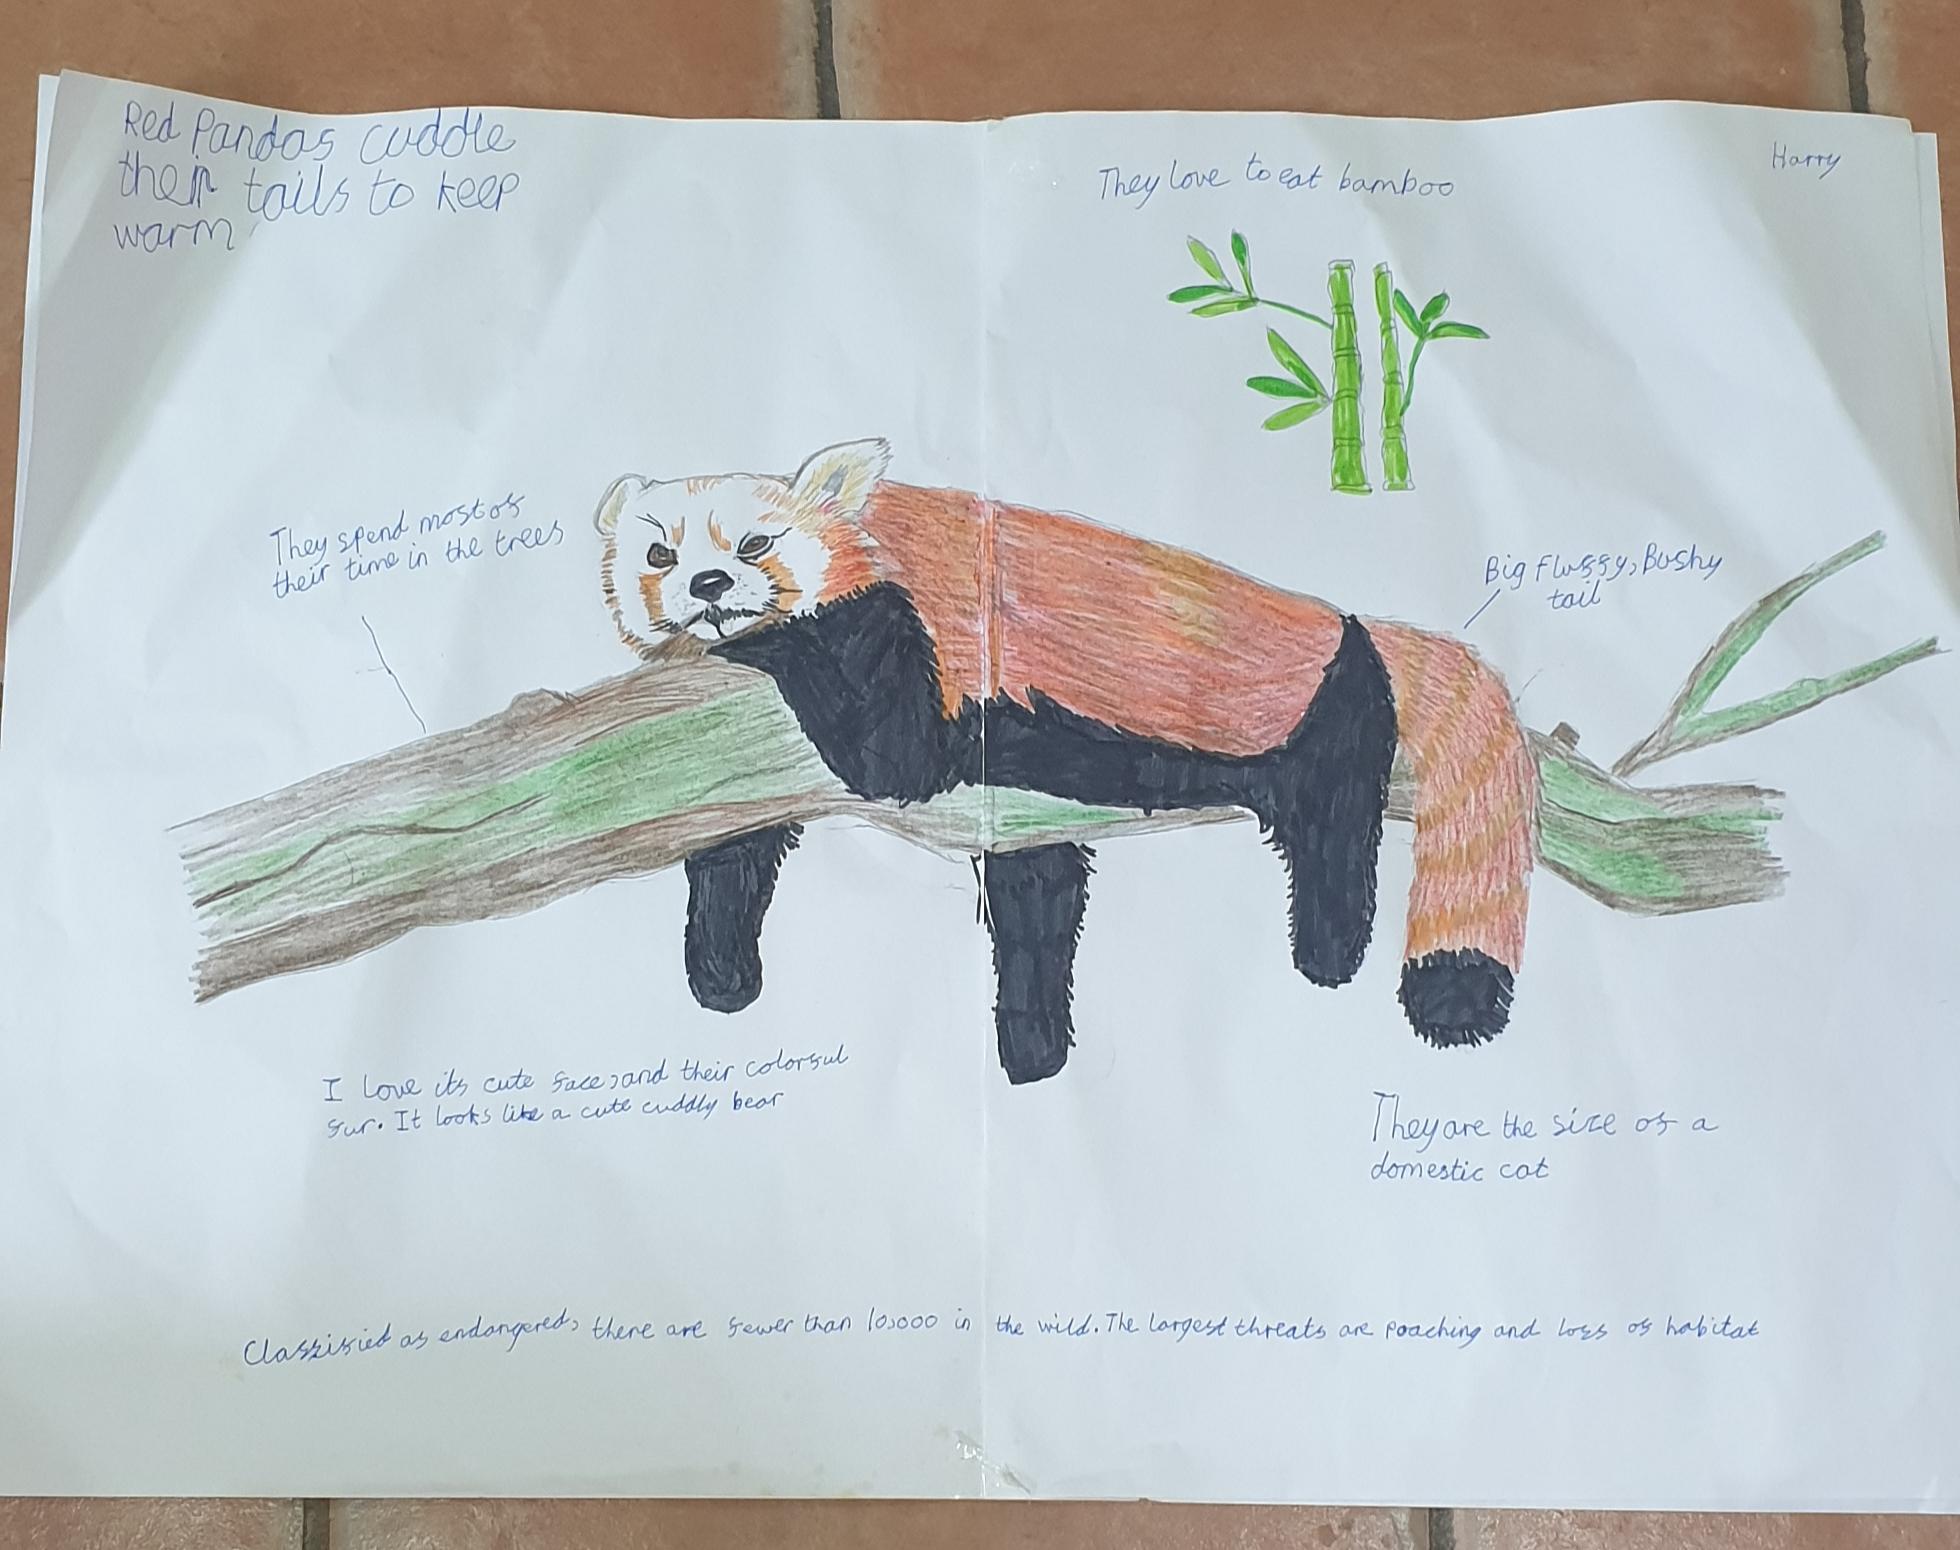 Red Pandas cuddle
their tails to keep
warm
They love to eat bamboo
Harry
They spend most of
their time in the trees
Big Fluffy, Bushy
tail
I love its cute face, and their colorful
fur. It looks like a cute cuddly bear
They are the size of a
domestic cat
Classified as endangered, there are fewer than 10,000 in the wild. The largest threats are poaching and loss of habitat